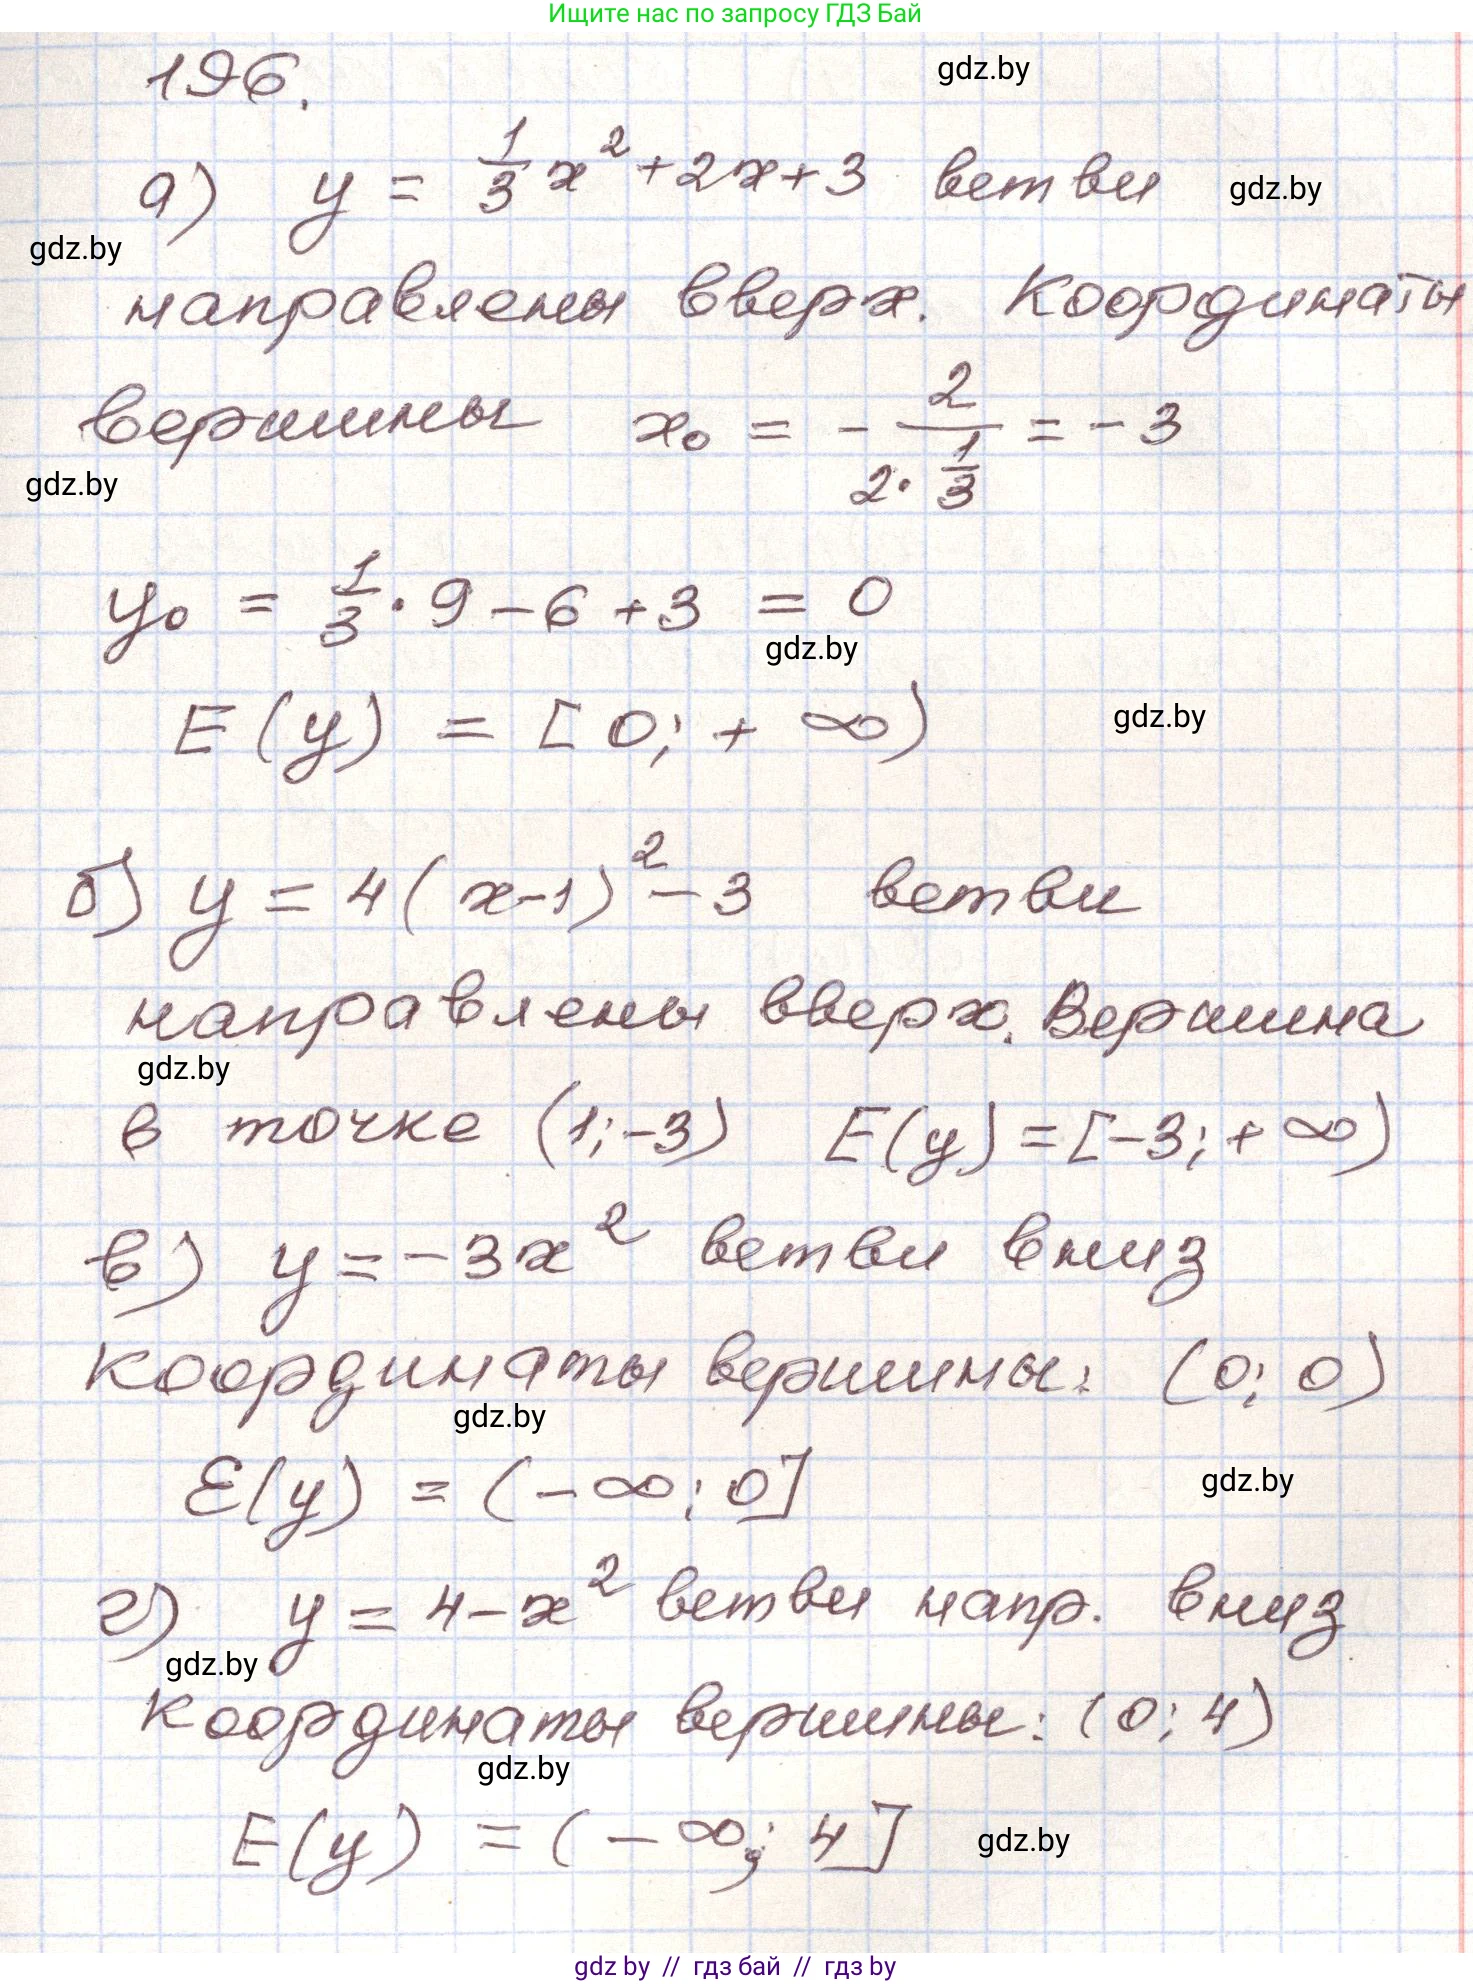 Ищите нас по запросу ГДЗ Бай
196.
gdz.by
а) y = 1/3 x² + 2x + 3 ветви
gdz.by
gdz.by
направлены вверх. Координаты
вершины x₀ = - 2/(2·1/3) = -3
gdz.by
y₀ = 1/3 · 9 - 6 + 3 = 0
gdz.by
E(y) = [0; +∞)
gdz.by
б) y = 4(x-1)² - 3 ветви
направлены вверх. Вершина
gdz.by
в точке (1; -3) E(y) = [-3; +∞)
в) y = -3x² ветви вниз
координаты вершины: (0; 0)
gdz.by
E(y) = (-∞; 0]
gdz.by
г) y = 4 - x² ветви напр. вниз
gdz.by
координаты вершины: (0; 4)
gdz.by
E(y) = (-∞; 4]
gdz.by
gdz.by // гдз бай // гдз by